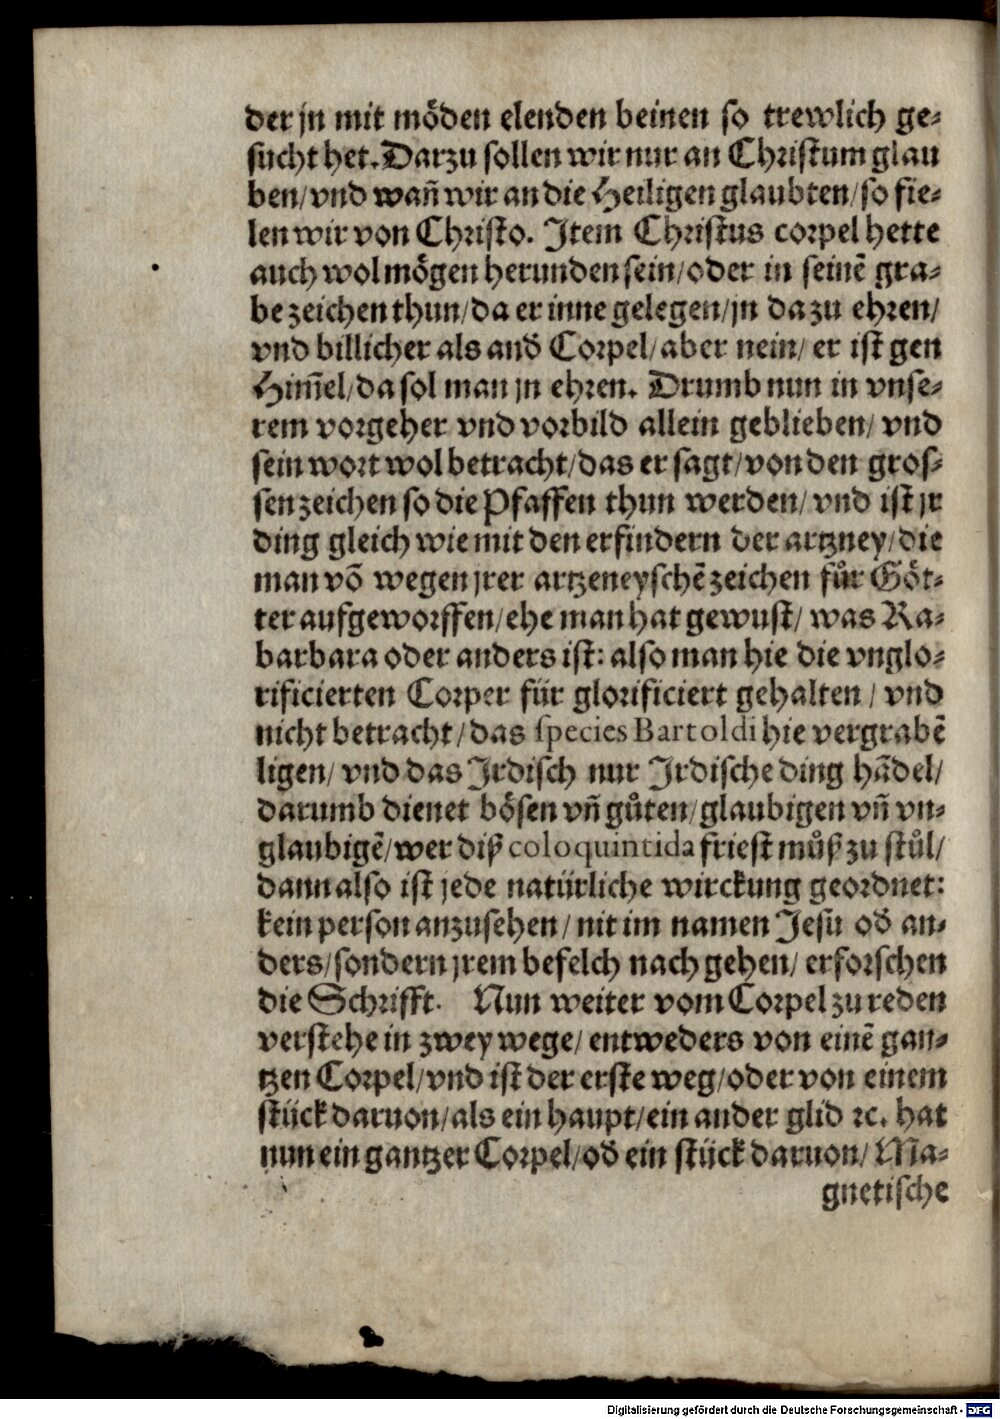 der jn mit moͤden elenden beinen so trewlich ge⸗
sucht het. Darzu sollen wir nur an Christum glau
ben/ vnd wañ wir an die Heiligen glaubten/ so fie⸗
len wir von Christo. Item Christus corpel hette
auch wol moͤgen herunden sein/ oder in seinē gra⸗
be zeichen thun/ da er inne gelegen/ jn da zu ehren/
vnd billicher als and̕ Corpel/ aber nein/ er ist gen
Him̄el/ da sol man jn ehren. Drumb nun in vnse⸗
rem vorgeher vnd vorbild allein geblieben/ vnd
sein wort wol betracht/ das er sagt/ von den gros⸗
sen zeichen so die Pfaffen thun werden/ vnd ist jr
ding gleich wie mit den erfindern der artzney/ die
man vō wegen jrer artzeneyschē zeichen fuͤr Goͤt⸗
ter aufgeworffen/ ehe man hat gewust/ was Ra⸗
barbara oder anders ist: also man hie die vnglo⸗
rificierten Corper für glorificiert gehalten / vnd
nicht betracht/ das species Bartoldi hie vergrabē
ligen/ vnd das Irdisch nur Irdische ding hādel/
darumb dienet boͤsen vñ guͦten/ glaubigen vñ vn⸗
glaubigē/ wer diß coloquintida friest muͦß zu stuͦl/
dann also ist jede natürliche wirckung geordnet:
kein person anzusehen/ nit im namen Jesu od̕ an⸗
ders/ sondern jrem befelch nach gehen/ erforschen
die Schrifft. Nun weiter vom Corpel zu reden
verstehe in zwey wege/ entweders von einē gan⸗
tzen Corpel/ vnd ist der erste weg/ oder von einem
stück daruon/ als ein haupt/ ein ander glid ꝛc. hat
nun ein gantzer Corpel/ od̕ ein stück daruon/ Ma⸗
gnetische
Digitalisierung gefördert durch die Deutsche Forschungsgemeinschaft - DFG